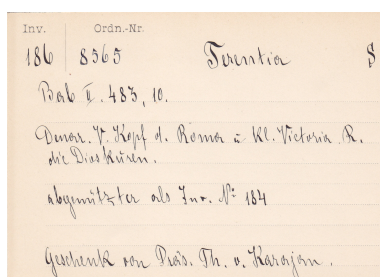 Inv. Ordn.-Nr.
186 8565 Terentia S
Bab II. 483, 10.
Denar. V. Kopf d. Roma u kl. Victoria R.
die Dioskuren.
abgenützter als Inv. Nº 184
Geschenk von Präs. Th. v. Karajan.